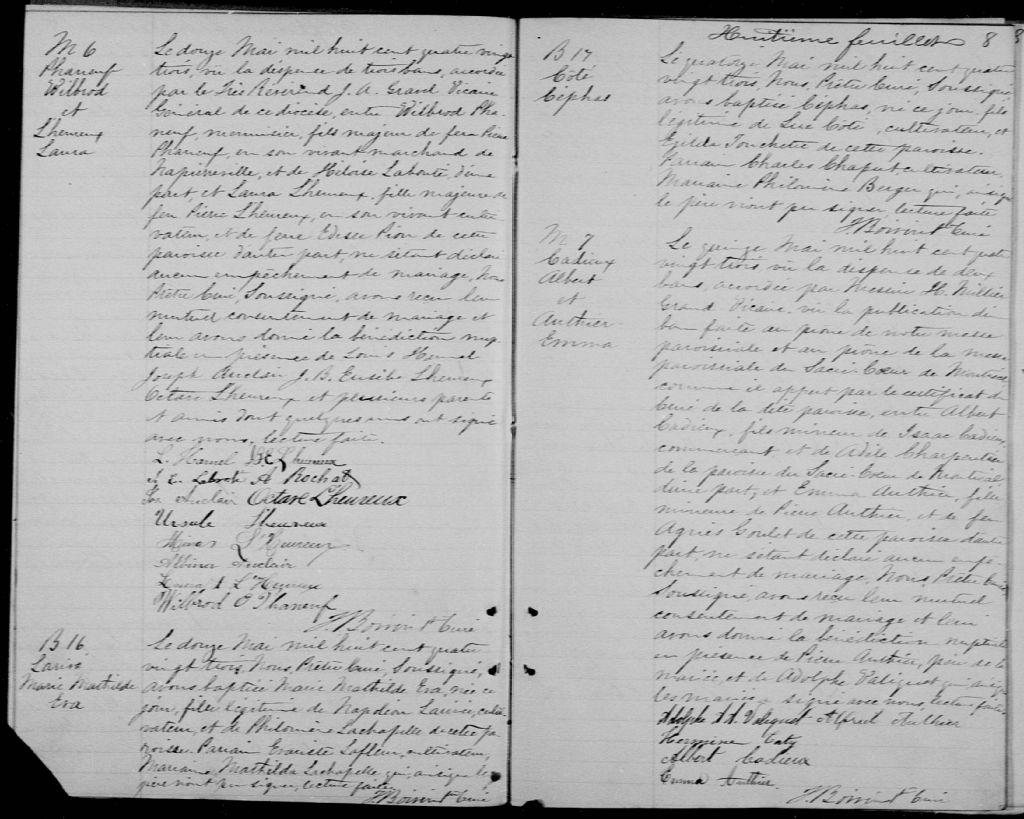 M 6
Phaneuf
Wilbrod
et
Lheureux
Laura
Le douze Mai mil huit cent quatre vingt
trois, vu la dispense de trois bans, accordée
par le Très Révérend J. A. Grand Vicaire
Général de ce diocèse, entre Wilbrod Pha-
neuf, menuisier, fils majeur de feu Pierre
Phaneuf, en son vivant marchand de
Napierville, et de Héloïse Labonté, d'une
part, et Laura Lheureux, fille majeure de
feu Pierre Lheureux, en son vivant culti-
vateur, et de feue Edisse Pion de cette
paroisse d'autre part, ne s'étant déclaré
aucun empêchement de mariage, Nous
Prêtre Curé, Soussigné, avons reçu leur
mutuel consentement de mariage et
leur avons donné la bénédiction nup-
tiale en présence de Louis Hamel
Joseph Auclair J. B. Eusèbe Lheureux
Octave Lheureux et plusieurs parents
et amis dont quelques uns ont signé
avec nous, lecture faite.
L. Hamel J.B.E. Lheureux
A Rochat
Jos Auclair Octave L'heureux
Ursule Lheureux
L'Heureux
Albina Auclair
Laura L'Heureux
Wilbrod O Phaneuf
J Boivin Ptre Curé
B 16
Larivé
Marie Mathilde
Eva
Le douze Mai mil huit cent quatre
vingt trois, Nous, Prêtre Curé, Soussigné,
avons baptisé Marie Mathilde Eva, née ce
jour, fille légitime de Napoléon Larivé, culti-
vateur, et de Philomène Lachapelle de cette pa-
roisse. Parrain Evariste Lafleur, cultivateur,
Marraine Mathilda Lachapelle qui, ainsi que le
père n'ont pu signer, lecture faite.
J Boivin Ptre Curé
Huitième feuillet 8
B 17
Côté
Céphas
Le quatorze Mai mil huit cent quatre
vingt trois, Nous, Prêtre Curé, Soussigné
avons baptisé Céphas, né ce jour, fils
légitime de Luc Côté, cultivateur, et
Exilda Fouchette de cette paroisse.
Parrain Charles Chaput cultivateur.
Marraine Philomène Berger qui, ainsi que
le père n'ont pu signer, lecture faite
J Boivin Ptre Curé
M 7
Cadieux
Albert
et
Authier
Emma
Le quinze Mai mil huit cent quatre
vingt trois, vu la dispense de deux
bans, accordée par Messire H. Millier
Grand Vicaire, vu la publication du
ban faite au prône de notre messe
paroissiale et au prône de la messe
paroissiale du Sacré Coeur de Montréal
comme il appert par le certificat du
Curé de la dite paroisse, entre Albert
Cadieux, fils mineur de Isaac Cadieux
commerçant et de Adèle Charpentier
de la paroisse du Sacré Coeur de Montréal
d'une part, et Emma Authier, fille
mineure de Pierre Authier, et de feu
Agnès Goulet de cette paroisse d'autre
part, ne s'étant déclaré aucun empê-
chement de mariage, Nous, Prêtre Curé,
Soussigné, avons reçu leur mutuel
consentement de mariage et leur
avons donné la bénédiction nuptiale
en présence de Pierre Authier, père de la
mariée et de Adolphe Valiquet qui, ainsi que
les mariés a signé avec nous, lecture faite
Adolphe A. Valiquet Alfred Authier
Hermine Caty
Albert Cadieux
Emma Authier.
J. Boivin Ptre Curé